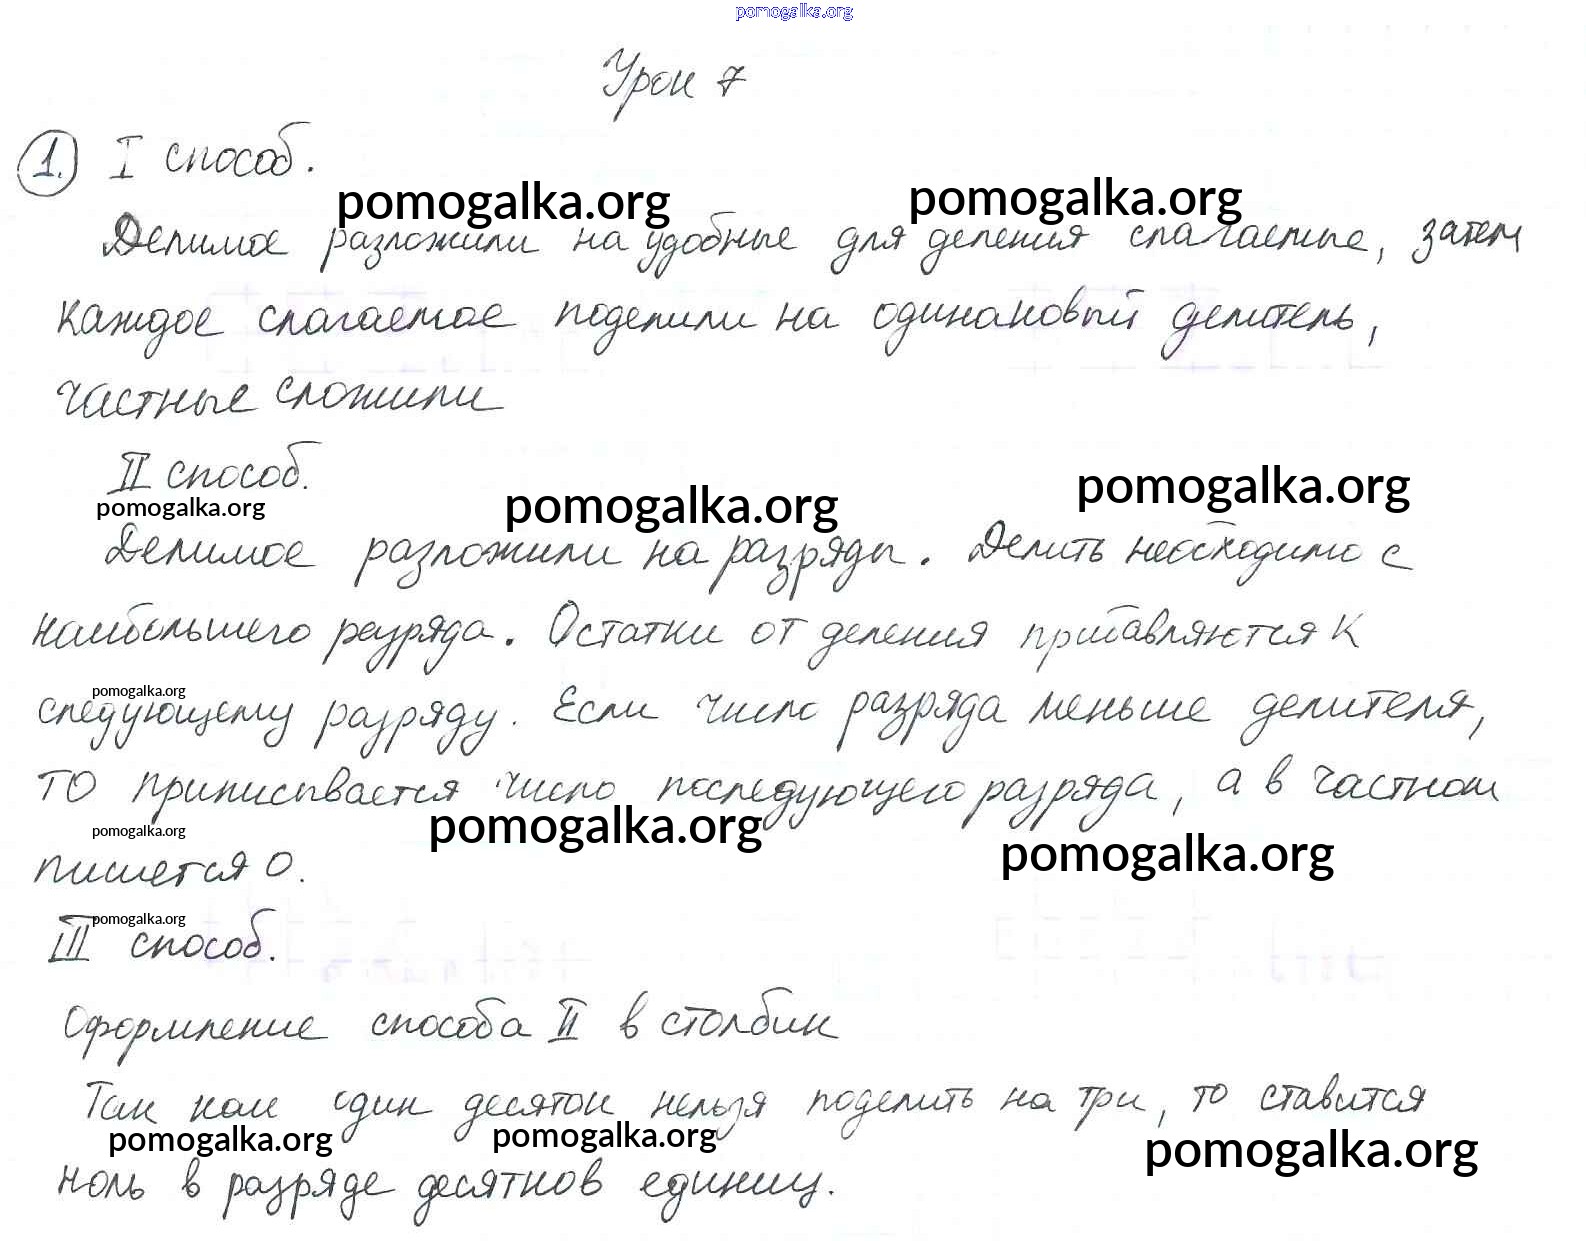 pomogalka.org
Урок 7
1. I способ.
pomogalka.org pomogalka.org
Делимое разложили на удобные для деления слагаемые, затем
каждое слагаемое поделили на одинаковый делитель,
частные сложили
II способ.
pomogalka.org pomogalka.org pomogalka.org
Делимое разложили на разряды. Делить необходимо с
наибольшего разряда. Остатки от деления прибавляются к
pomogalka.org
следующему разряду. Если число разряда меньше делителя,
то приписывается число последующего разряда, а в частном
pomogalka.org pomogalka.org pomogalka.org
пишется 0.
pomogalka.org
III способ.
Оформление способа II в столбик
Так как один десяток нельзя поделить на три, то ставится
pomogalka.org pomogalka.org pomogalka.org
ноль в разряде десятков единиц.